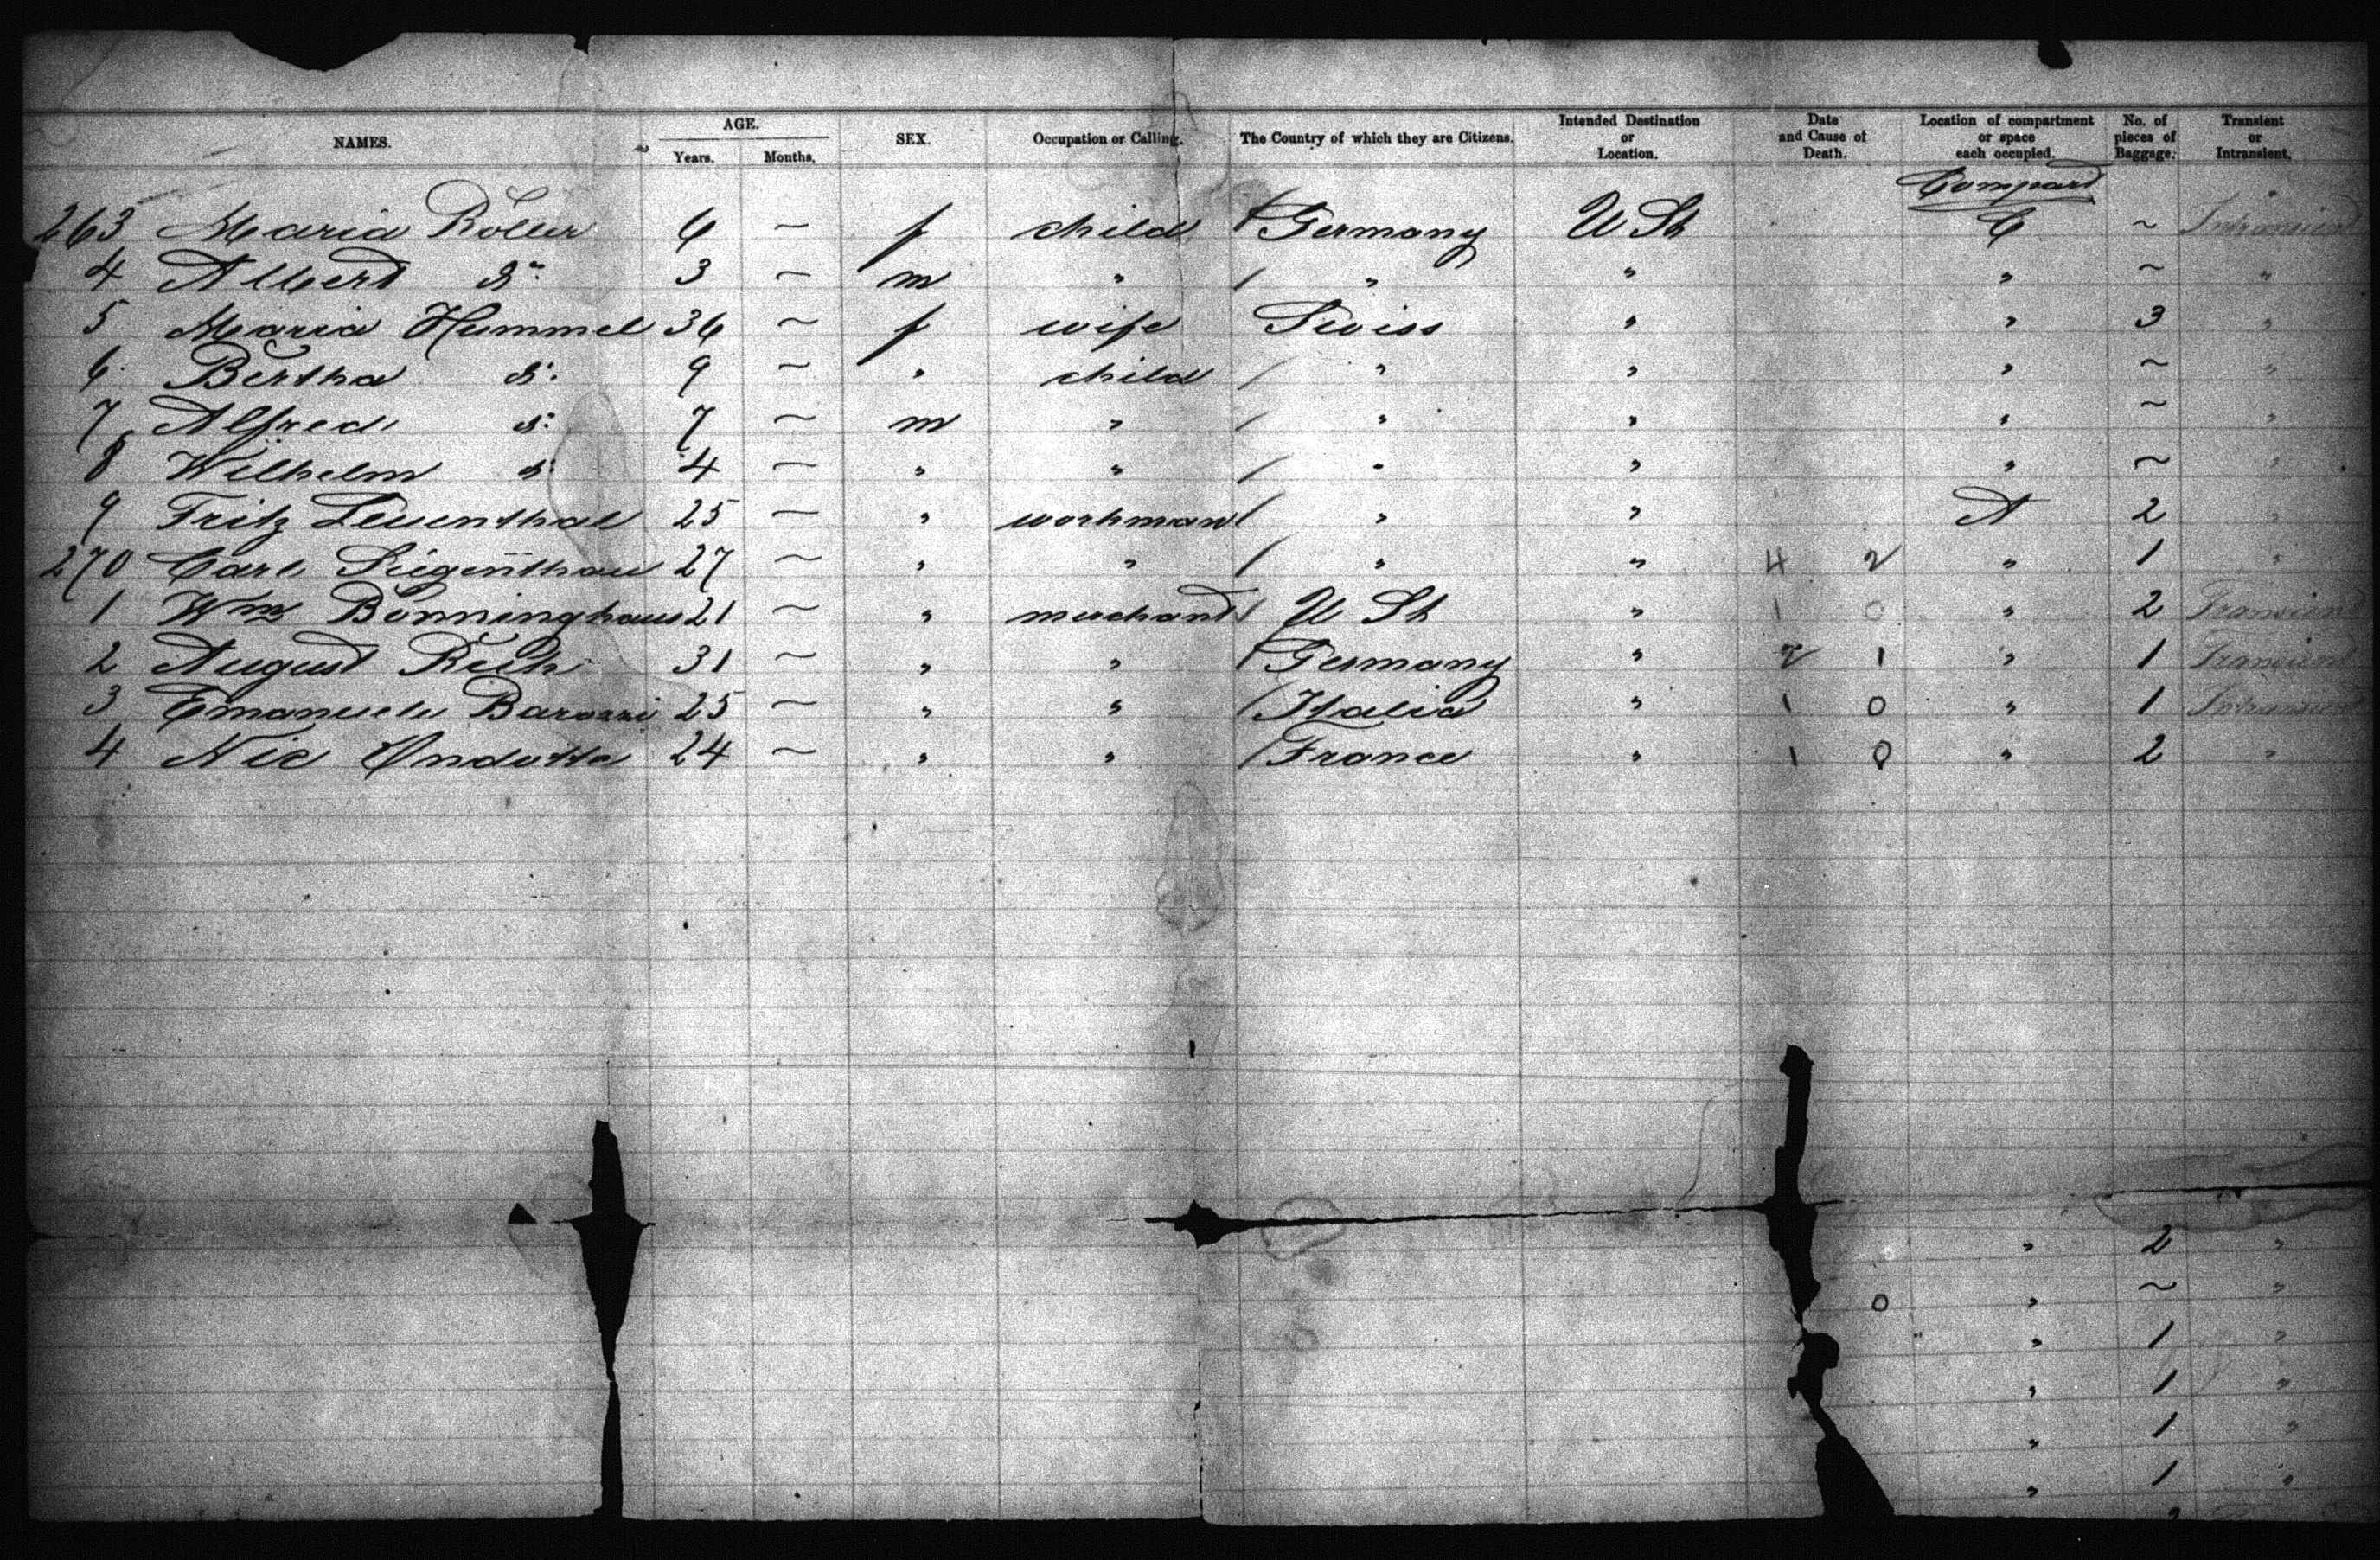 NAMES. AGE. Years. Months. SEX. Occupation or Calling. The Country of which they are Citizens. Intended Destination or Location. Date and Cause of Death. Location of compartment or space each occupied. No. of pieces of Baggage. Transient or Intransient.
Compard
263 Maria Böller 6 ~ f child Germany U St C ~ Intransient
4 Albert d° 3 ~ m " / " " " ~ "
5 Maria Hummel 36 ~ f wife Swiss " " 3 "
6 Bertha d° 9 ~ " child / " " " ~ "
7 Alfred d° 7 ~ m " / " " " ~ "
8 Wilhelm d° 4 ~ " " / " " " ~ "
9 Fritz Leuenthal 25 ~ " workman / " " A 2 "
270 Carl 27 ~ " " / " " 4 2 " 1 "
1 Wm Bönninghaus 21 ~ " merchant / U St " 1 0 " 2 Transient
2 August 31 ~ " " / Germany " 2 1 " 1 Transient
3 Emanuele Barozzi 25 ~ " " / Italia " 1 0 " 1 Intransient
4 Nic 24 ~ " " / France " 1 0 " 2 "
" 2 "
0 " ~ "
" 1 "
" 1 "
" 1 "
" 1 "